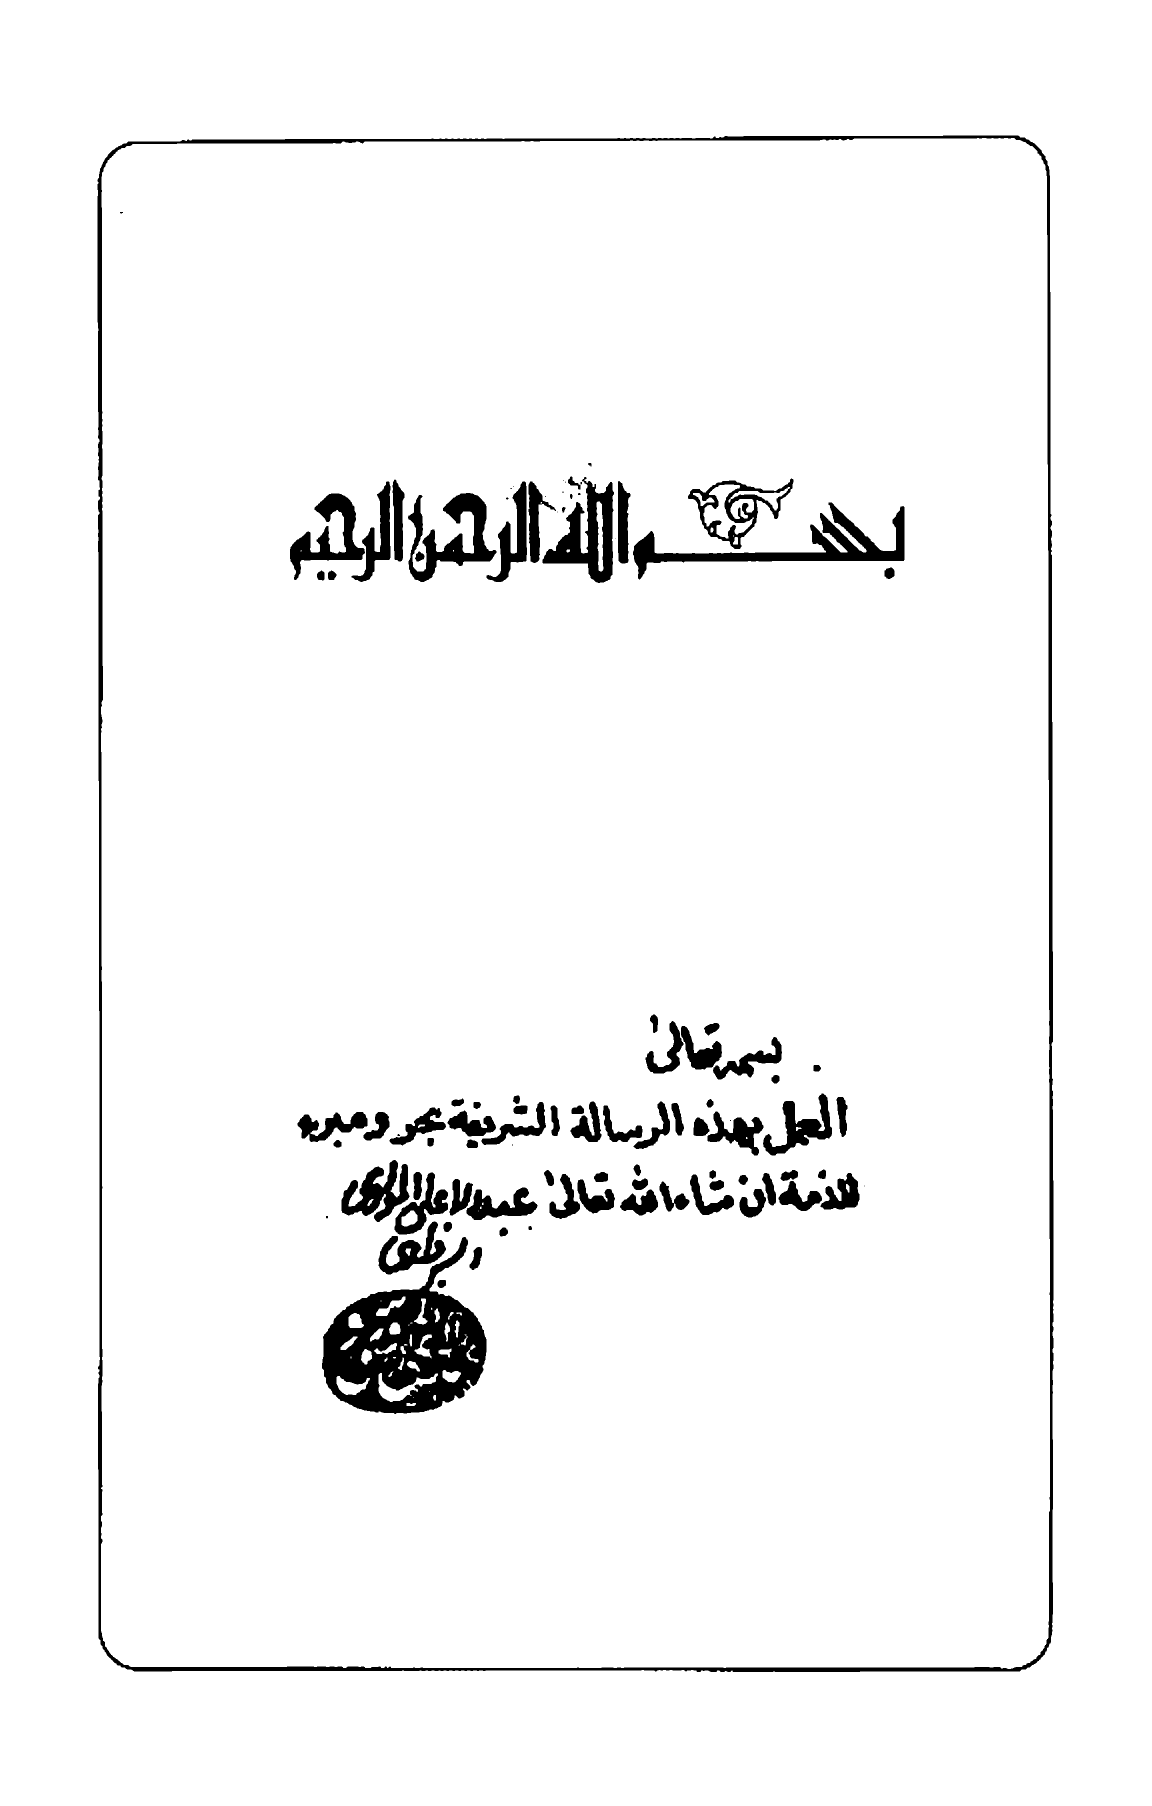 بسم الله الرحمن الرحيم
بسمه تعالى
العمل بهذه الرسالة الشريفة مجز ومبرء
للذمة ان شاء الله تعالى عبد الاعلى الموسوي
السبزواري